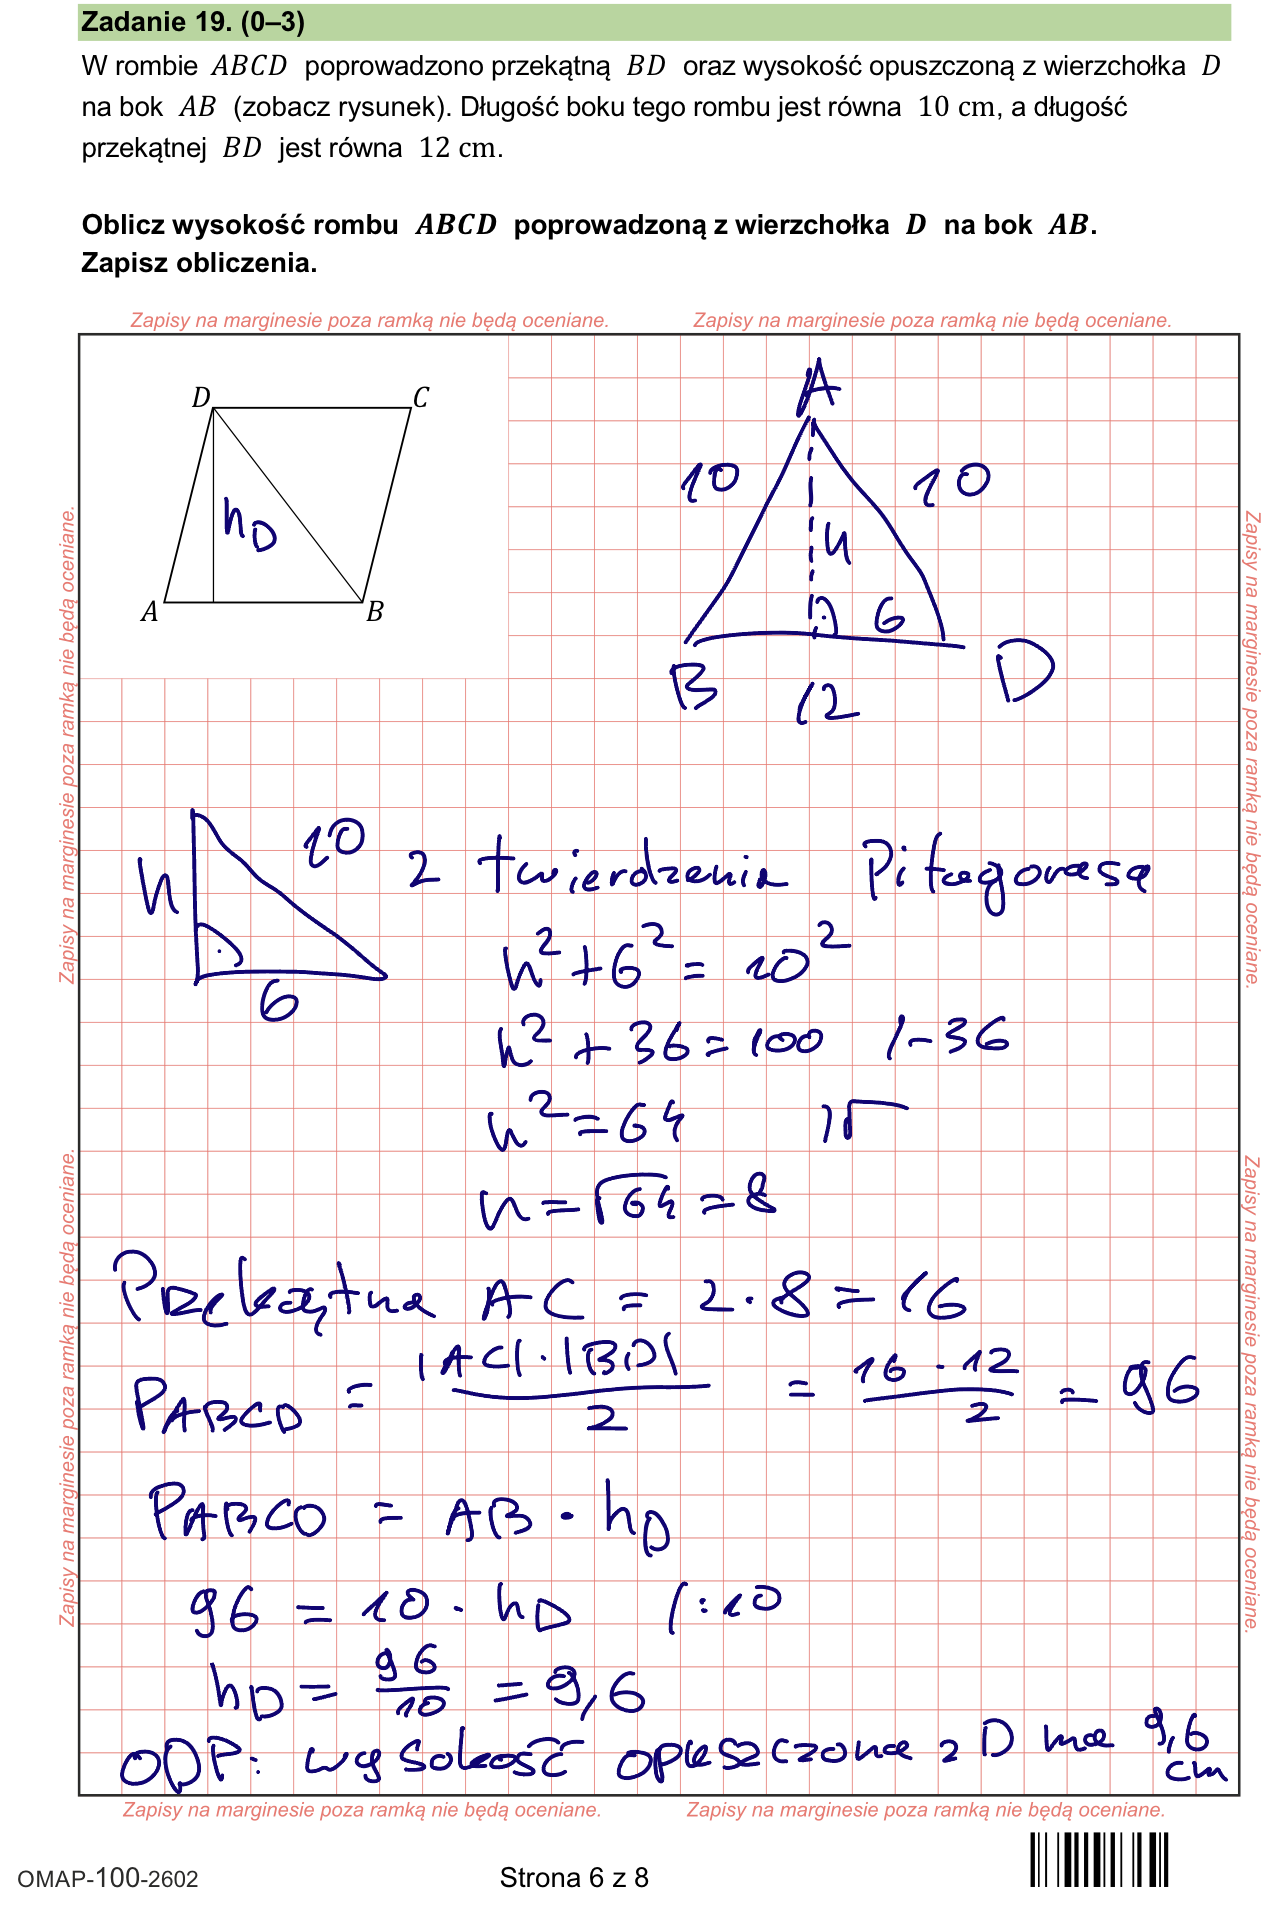 Zadanie 19. (0–3)
W rombie ABCD poprowadzono przekątną BD oraz wysokość opuszczoną z wierzchołka D
na bok AB (zobacz rysunek). Długość boku tego rombu jest równa 10 cm, a długość
przekątnej BD jest równa 12 cm.
Oblicz wysokość rombu ABCD poprowadzoną z wierzchołka D na bok AB.
Zapisz obliczenia.
Zapisy na marginesie poza ramką nie będą oceniane. Zapisy na marginesie poza ramką nie będą oceniane.
Zapisy na marginesie poza ramką nie będą oceniane.
Zapisy na marginesie poza ramką nie będą oceniane.
Zapisy na marginesie poza ramką nie będą oceniane.
Zapisy na marginesie poza ramką nie będą oceniane.
D C
h_D
A B
A
10 10
h
6
B 12 D
h 10
6
z twierdzenia Pitagorasa
h² + 6² = 10²
h² + 36 = 100 /-36
h² = 64 /√
h = √64 = 8
Przekątna AC = 2·8 = 16
P_ABCD = |AC|·|BD| / 2 = 16·12 / 2 = 96
P_ABCD = AB · h_D
96 = 10 · h_D /:10
h_D = 96/10 = 9,6
ODP: wysokość opuszczona z D ma 9,6
cm
Zapisy na marginesie poza ramką nie będą oceniane. Zapisy na marginesie poza ramką nie będą oceniane.
OMAP-100-2602 Strona 6 z 8